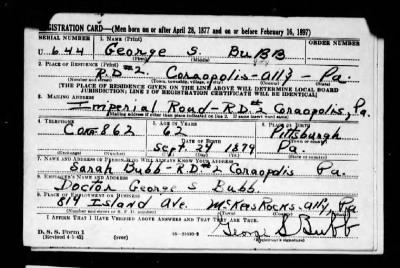 REGISTRATION CARD—(Men born on or after April 28, 1877 and on or before February 16, 1897)
SERIAL NUMBER 1. NAME (Print) ORDER NUMBER
U 644 George S. BuBB
(First) (Middle) (Last)
2. PLACE OF RESIDENCE (Print)
R.D#2. Coraopolis - Ally - Pa.
(Number and street) (Town, township, village, or city) (County) (State)
[THE PLACE OF RESIDENCE GIVEN ON THE LINE ABOVE WILL DETERMINE LOCAL BOARD
JURISDICTION; LINE 2 OF REGISTRATION CERTIFICATE WILL BE IDENTICAL]
3. MAILING ADDRESS
Imperial Road - R.D.#2 Coraopolis, Pa.
[Mailing address if other than place indicated on line 2. If same insert word same]
4. TELEPHONE 5. AGE IN YEARS 6. PLACE OF BIRTH
Cora 862 62 Pittsburgh
DATE OF BIRTH
Sept. 24 1879 Pa.
7. NAME AND ADDRESS OF PERSON WHO WILL ALWAYS KNOW YOUR ADDRESS
Sarah Bubb - R.D#2 Coraopolis Pa.
8. EMPLOYER'S NAME AND ADDRESS
Doctor George S Bubb.
9. PLACE OF EMPLOYMENT OR BUSINESS
814 Island Ave. McKees Rocks. Ally, Pa
(Number and street or R. F. D. number) (Town) (County) (State)
I AFFIRM THAT I HAVE VERIFIED ABOVE ANSWERS AND THAT THEY ARE TRUE.
D. S. S. Form 1
(Revised 4-1-42) George S Bubb
(Registrant's signature)